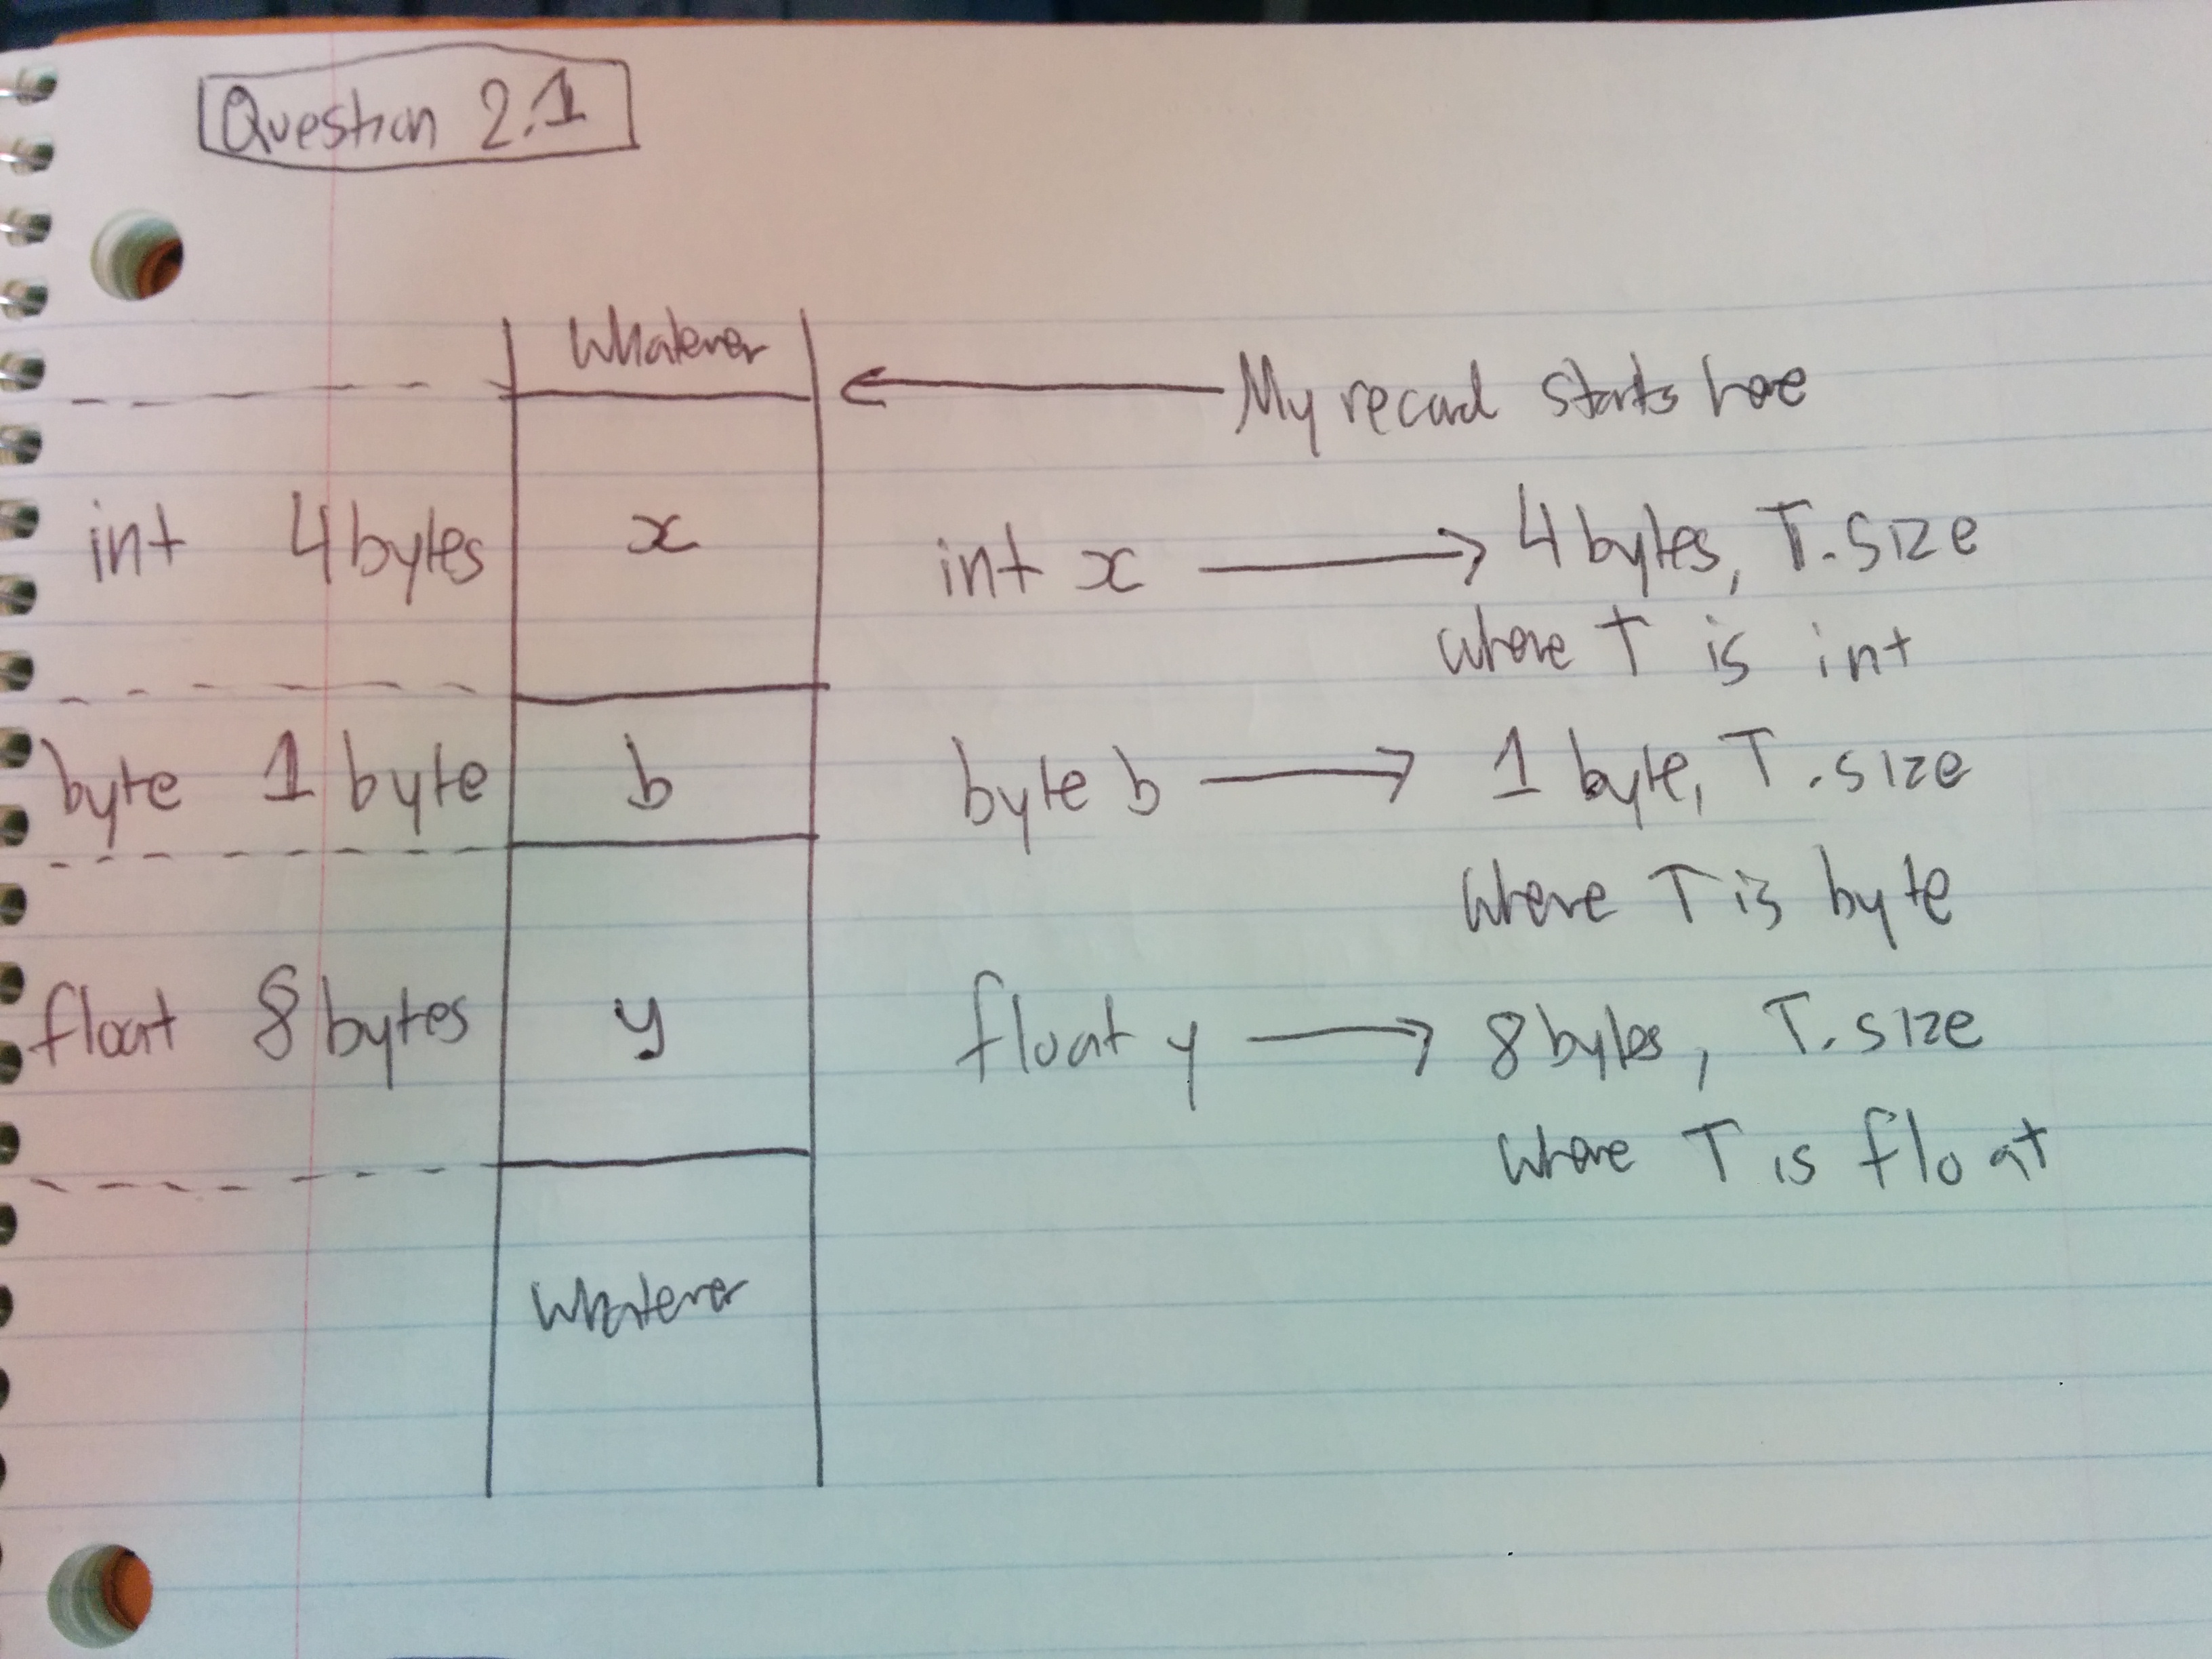 Question 2.1
Whatever
My record starts here
int 4 bytes x int x → 4 bytes, T.size
where T is int
byte 1 byte b byte b → 1 byte, T.size
where T is byte
float 8 bytes y float y → 8 bytes, T.size
where T is float
Whatever